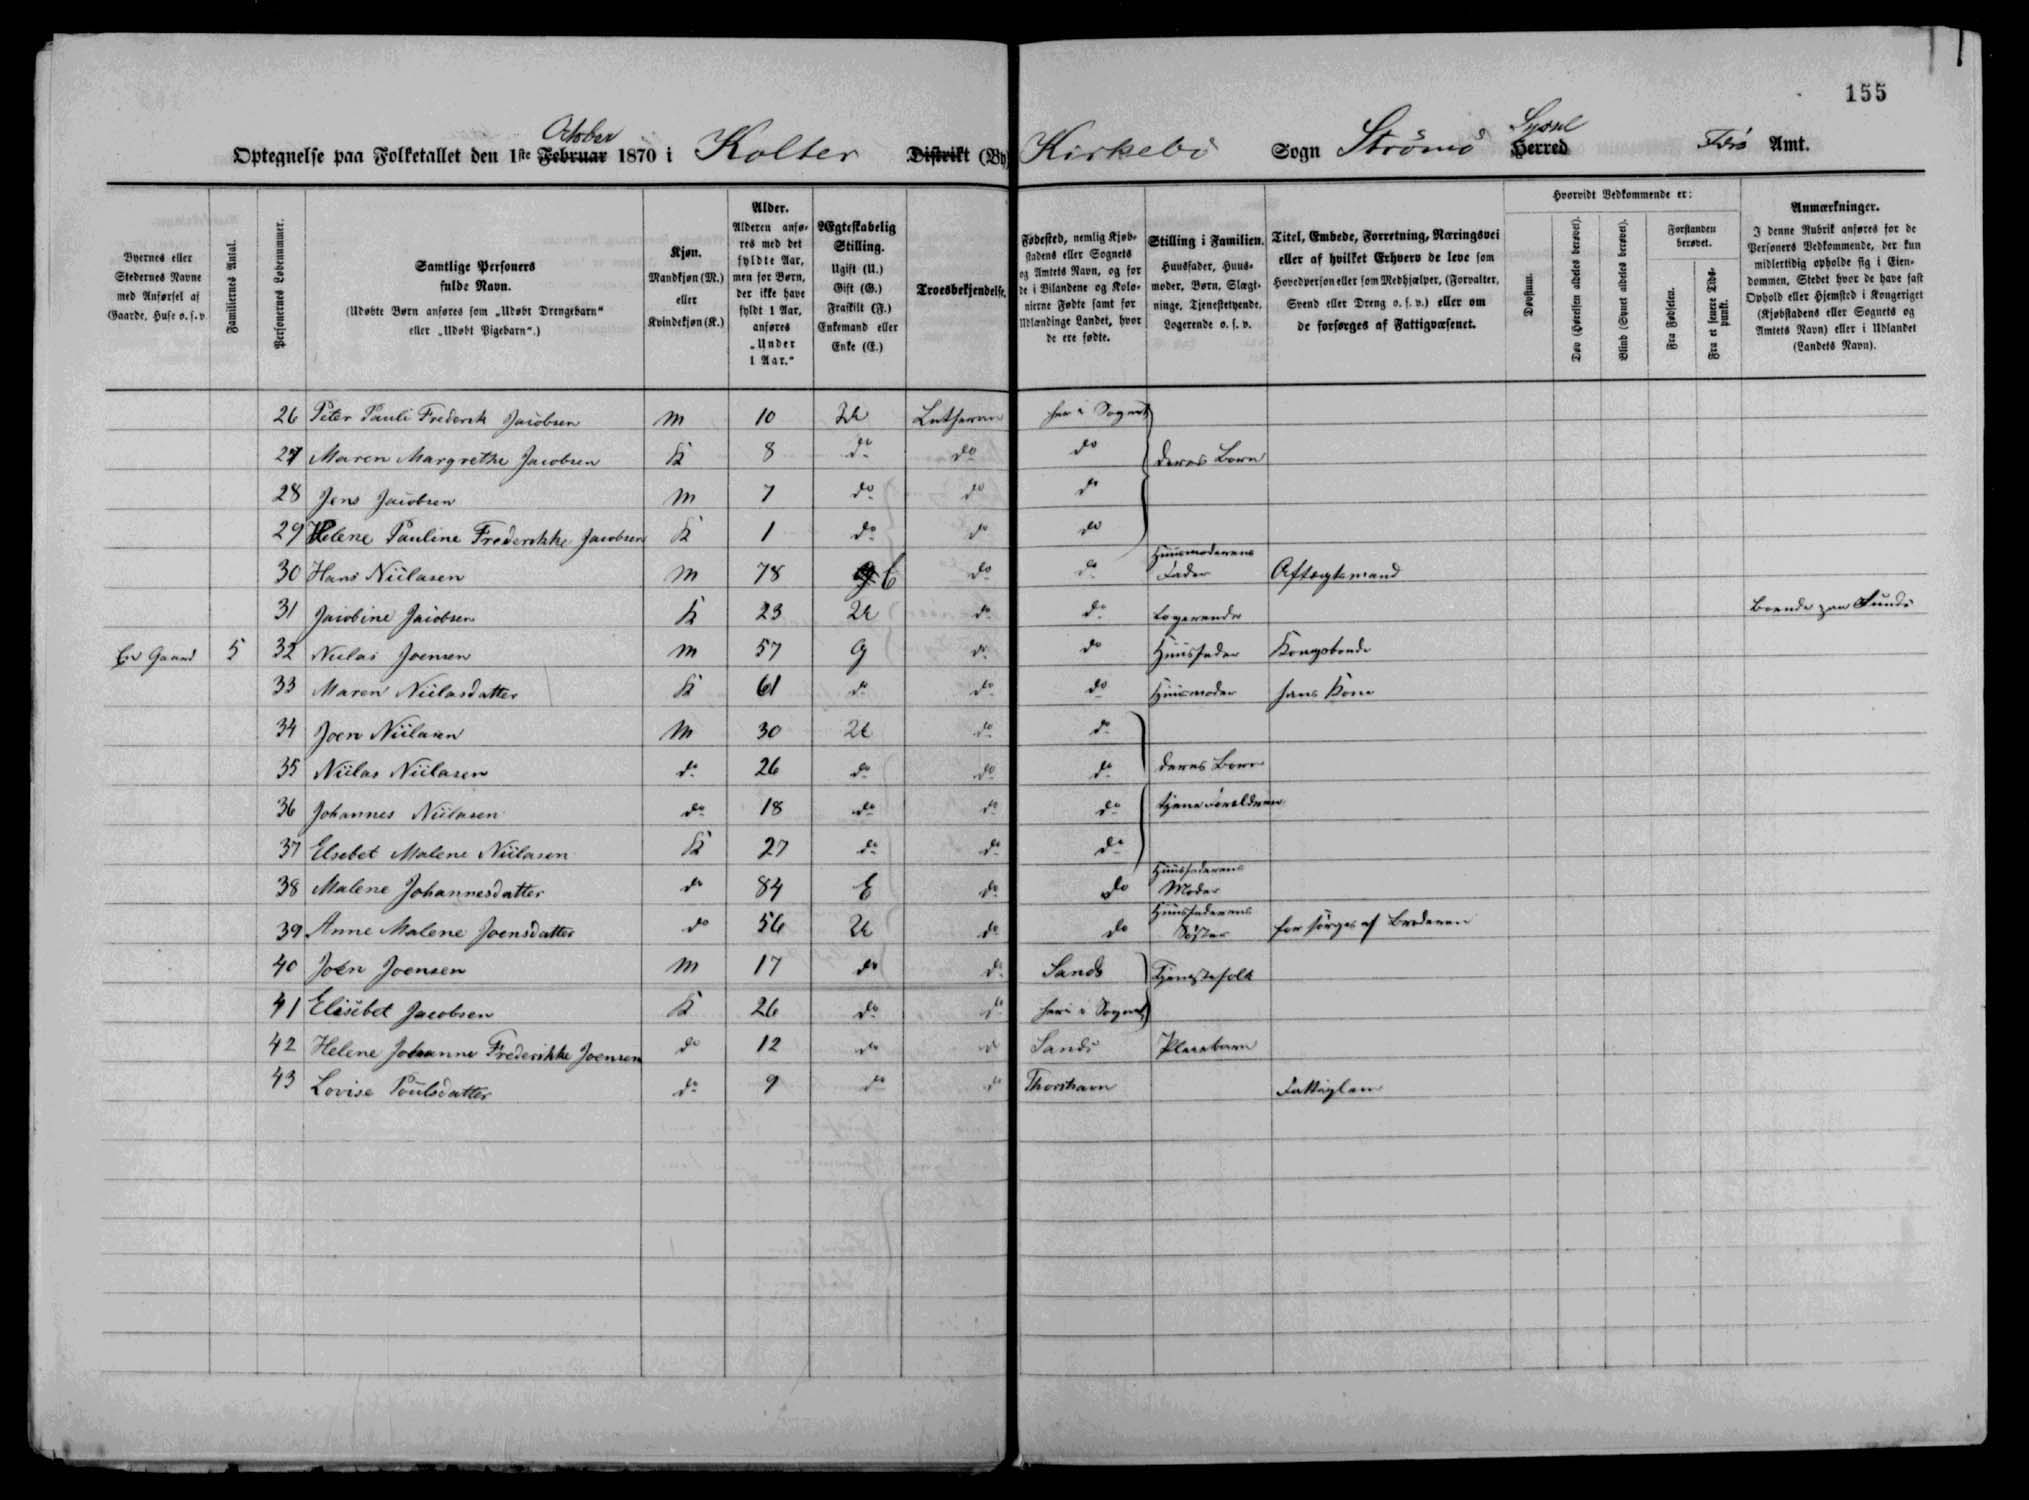 155
October Syssel
Optegnelse paa Folketallet den 1ste Februar 1870 i Kolter Distrikt (By) Kirkebö Sogn Strömö Herred Færö Amt.
Byernes eller Stedernes Navne med Anførsel af Gaarde, Huse o. s. v.
Familiernes Antal.
Personernes Løbenummer.
Samtlige Personers fulde Navn.
(Udøbte Børn anføres som „Udøbt Drengebarn“ eller „Udøbt Pigebarn“.)
Kjøn.
Mandkjøn (M.) eller Kvindekjøn (K.)
Alder.
Alderen anføres med det fyldte Aar, men for Børn, der ikke have fyldt 1 Aar, anføres „Under 1 Aar.“
Ægteskabelig Stilling.
Ugift (U.)
Gift (G.)
Fraskilt (F.)
Enkemand eller Enke (E.)
Troesbekjendelse.
Fødested, nemlig Kjøbstadens eller Sognets og Amtets Navn, og for de i Bilandene og Kolonierne Fødte samt for Udlændinge Landet, hvor de ere fødte.
Stilling i Familien.
Huusfader, Huusmoder, Børn, Slægtninge, Tjenestetyende, Logerende o. s. v.
Titel, Embede, Forretning, Næringsvei eller af hvilket Erhverv de leve som Hovedperson eller som Medhjælper, (Forvalter, Svend eller Dreng o. s. v.) eller om de forsørges af Fattigvæsenet.
Hvorvidt Vedkommende er:
Døvstum.
Døv (Hørelsen aldeles berøvet).
Blind (Synet aldeles berøvet).
Forstanden berøvet.
Fra Fødselen.
Fra et senere Tidspunkt.
Anmærkninger.
I denne Rubrik anføres for de Personers Vedkommende, der kun midlertidig opholde sig i Eiendommen, Stedet hvor de have fast Ophold eller Hjemsted i Kongeriget (Kjøbstadens eller Sognets og Amtets Navn) eller i Udlandet (Landets Navn).
26 Peter Pauli Frederik Jacobsen M 10 U Lutheran her i Sognet
27 Maren Margrethe Jacobsen K 8 do do do deres Børn
28 Jens Jacobsen M 7 do do do
29 Helene Pauline Frederikke Jacobsen K 1 do do do
30 Hans Niclasen M 78 E do do Huusmoderens Fader Aftægtsmand
31 Jacobine Jacobsen K 23 U do do Logerende Boende paa Sunds
En Gaard 5 32 Niclas Joensen M 57 G do do Huusfader Kongsbonde
33 Maren Niclasdatter K 61 do do do Huusmoder hans Kone
34 Joen Niclasen M 30 U do do
35 Niclas Niclasen do 26 do do do deres Børn
36 Johannes Niclasen do 18 do do do tjene Forældrene
37 Elsebet Malene Niclasen K 27 do do do
38 Malene Johannesdatter do 84 E do do Huusfaderens Moder
39 Anne Malene Joensdatter do 56 U do do Huusfaderens Søster forsörges af Broderen
40 Joen Joensen M 17 do do Sands Tjenestefolk
41 Elisebet Jacobsen K 26 do do her i Sognet
42 Helene Johanne Frederikke Joensen do 12 do do Sands Pleiebarn
43 Lovise Poulsdatter do 9 do do Thorshavn Fattiglem